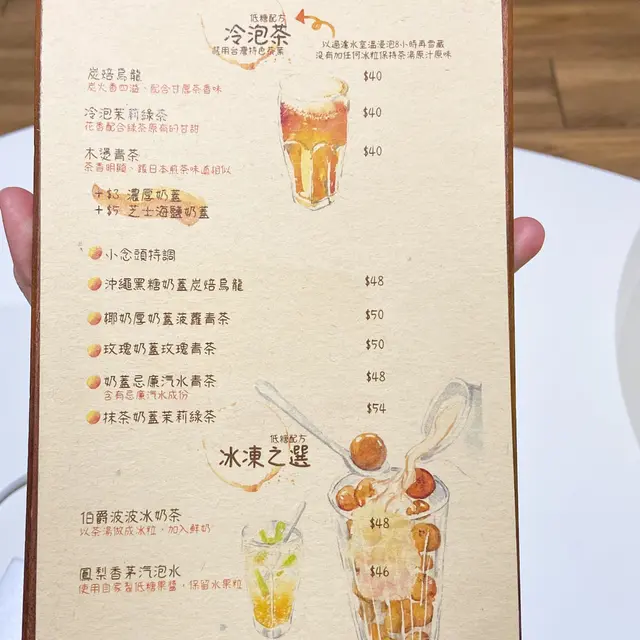 低糖配方
冷泡茶
選用台灣特色茶葉
以過濾水室温浸泡8小時再雪藏
沒有加任何冰粒保持茶湯原汁原味
炭焙烏龍 $40
炭火香四溢、配合甘厚茶香味
冷泡茉莉綠茶 $40
花香配合綠茶原有的甘甜
木燙青茶 $40
茶香明顯、跟日本煎茶味道相似
+$3 濃厚奶蓋
+$5 芝士海鹽奶蓋
小念頭特調
沖繩黑糖奶蓋炭焙烏龍 $48
椰奶厚奶蓋菠蘿青茶 $50
玫瑰奶蓋玫瑰青茶 $50
奶蓋忌廉汽水青茶 $48
含有忌廉汽水成份
抹茶奶蓋茉莉綠茶 $54
低糖配方
冰凍之選
伯爵波波冰奶茶 $48
以茶湯做成冰粒、加入鮮奶
鳳梨香茅汽泡水 $46
使用自家製低糖果醬、保留水果粒